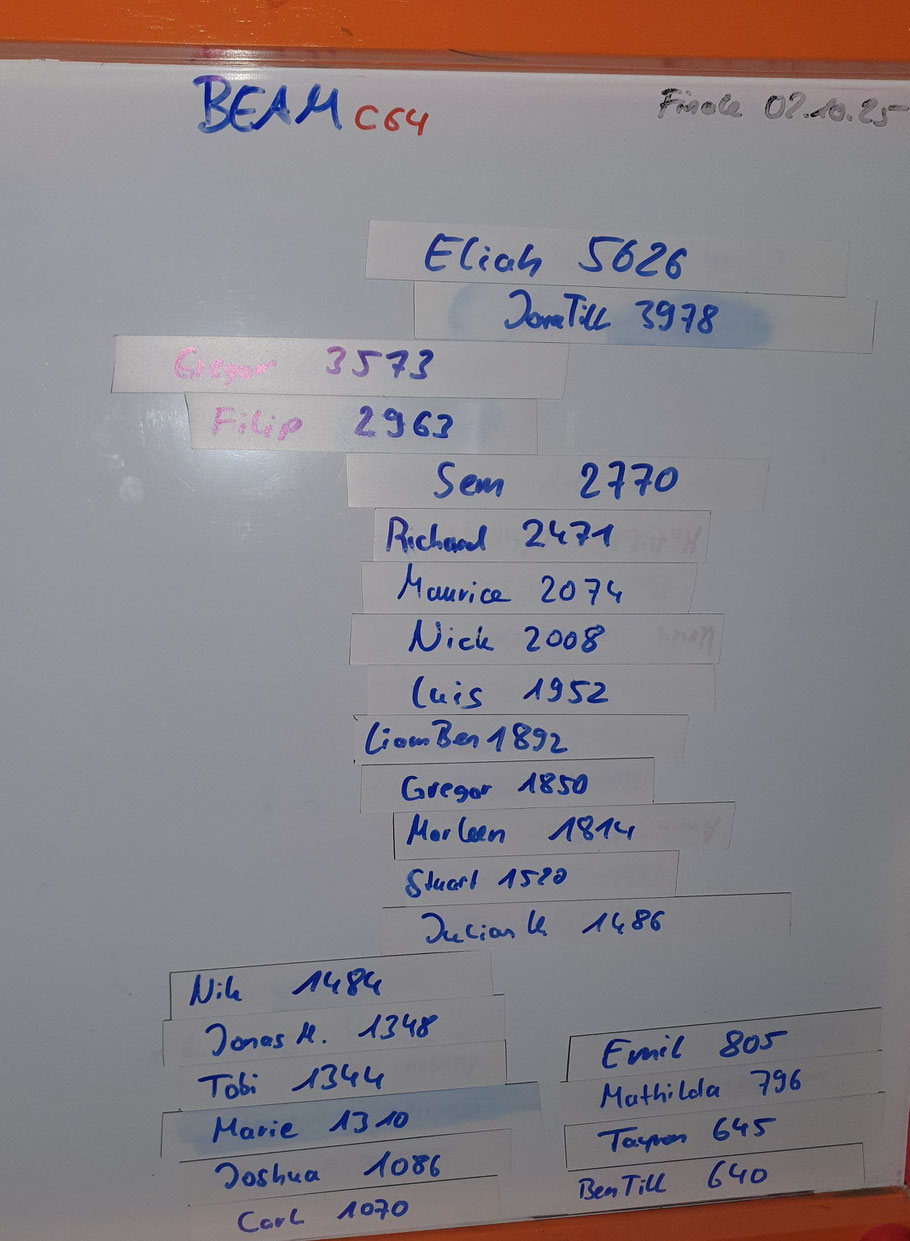 BEAM C64
Finale 02.10.25
Eliah 5626
JonaTill 3978
Gregor 3573
Filip 2963
Sem 2770
Richard 2471
Maurice 2074
Nick 2008
Luis 1952
LiamBen 1892
Gregor 1850
Marleen 1814
Stuart 1520
Julian K 1486
Nik 1484
Jonas M. 1348
Tobi 1344
Marie 1310
Joshua 1086
Carl 1070
Emil 805
Mathilda 796
Tayron 645
BenTill 640